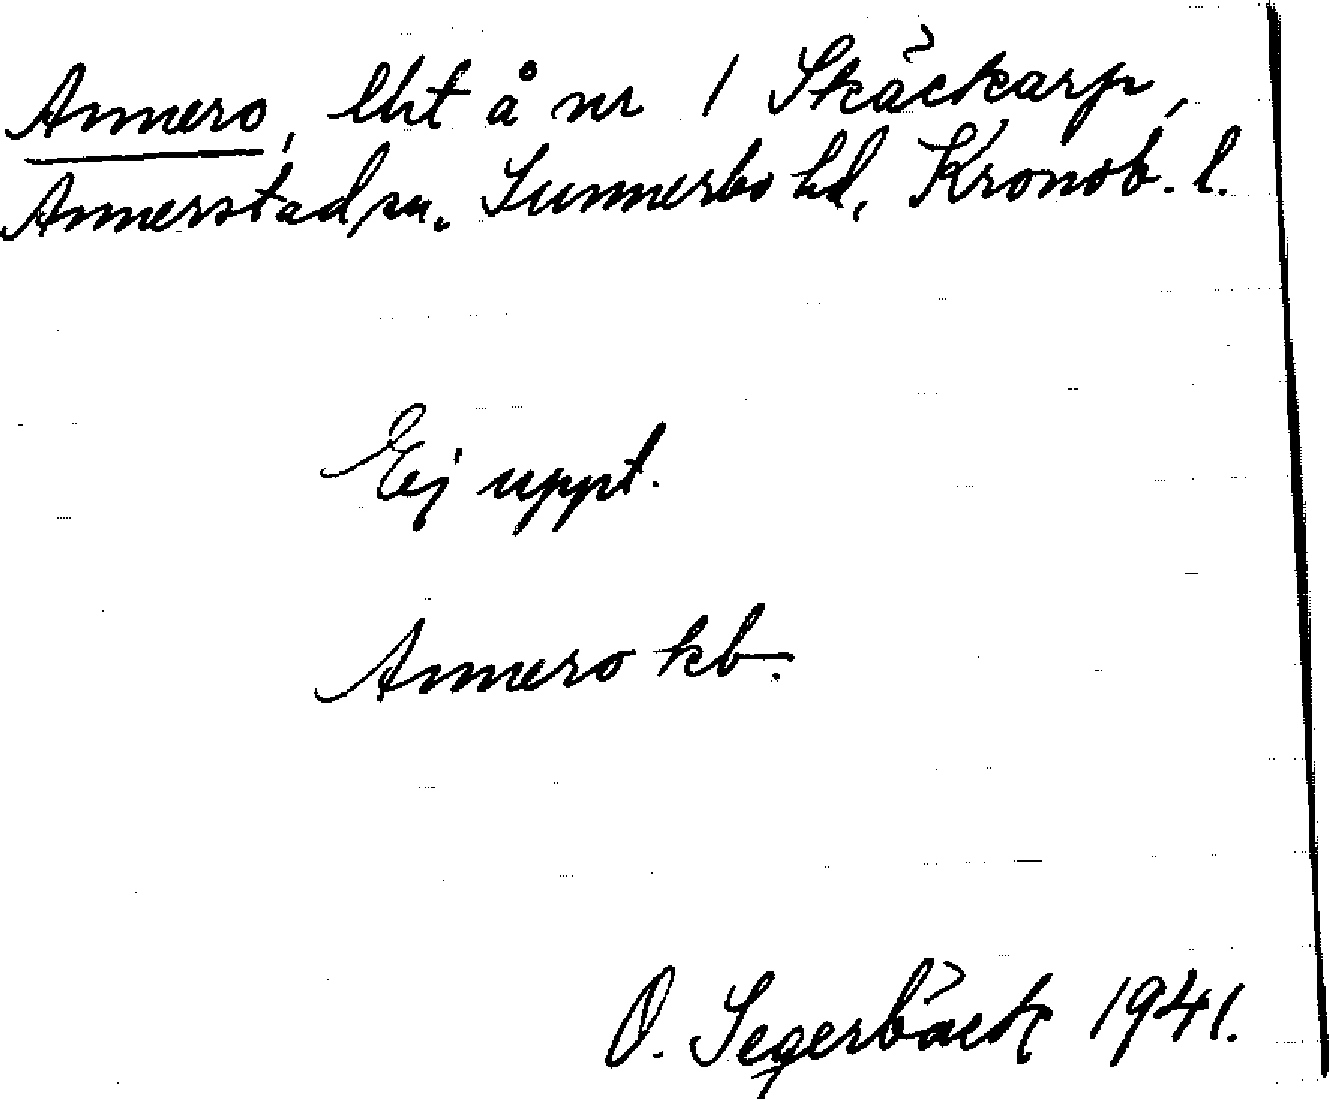 Annero, lht å nr 1 Skäckarp,
Annerstad sn. Sunnerbo hd, Kronob. l.
Ej uppt.
Annero kb.
O. Segerbäck 1941.